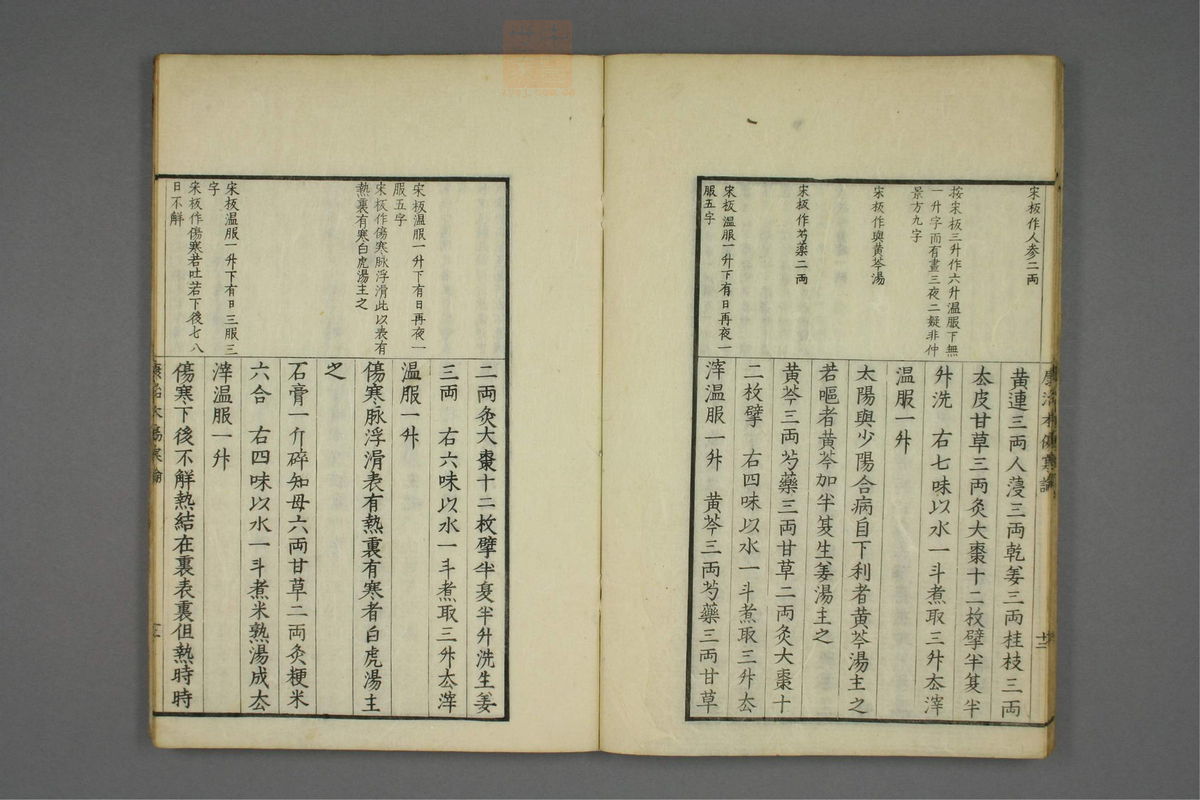 宋板作人参二両
按宋板三升作六升温服下無
一升字而有晝三夜二疑非仲
景方九字
宋板作與黄芩湯
宋板作芍藥二両
宋板温服一升下有日再夜一
服五字
黄連三両人薓三両乾姜三両桂枝三両
厺皮甘草三両灸大棗十二枚擘半夏半
升洗　右七味以水一斗煮取三升厺滓
温服一升
太陽與少陽合病自下利者黄芩湯主之
若嘔者黄芩加半夏生姜湯主之
黄芩三両芍藥三両甘草二両灸大棗十
二枚擘　右四味以水一斗煮取三升厺
滓温服一升　黄芩三両芍藥三両甘草
宋板温服一升下有日再夜一
服五字
宋板作傷寒脉浮滑此以表有
熱裏有寒白虎湯主之
宋板温服一升下有日三服三
字
宋板作傷寒若吐若下後七八
日不解
二両灸大棗十二枚擘半夏半升洗生姜
三両　右六味以水一斗煮取三升厺滓
温服一升
傷寒脉浮滑表有熱裏有寒者白虎湯主
之
石膏一斤碎知母六両甘草二両灸粳米
六合　右四味以水一斗煮米熟湯成厺
滓温服一升
傷寒下後不解熱結在裏表裏但熱時時